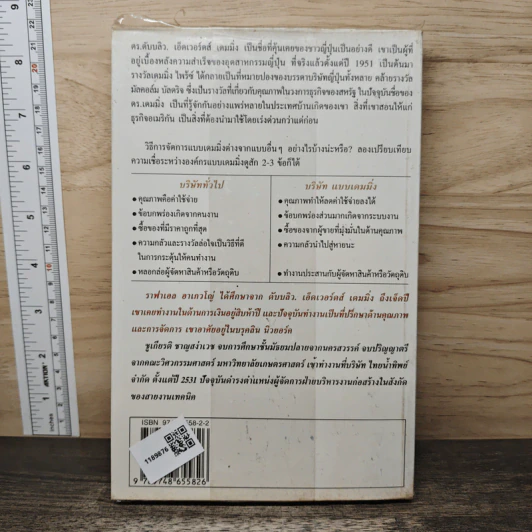 ดร.ดับบลิว. เอ็ดเวอร์ดส์ เดมมิ่ง เป็นชื่อที่คุ้นเคยของชาวญี่ปุ่นเป็นอย่างดี เขาเป็นผู้ที่
อยู่เบื้องหลังความสำเร็จของอุตสาหกรรมญี่ปุ่น ที่จริงแล้วตั้งแต่ปี 1951 เป็นต้นมา
รางวัลเดมมิ่ง ไพร้ซ์ ได้กลายเป็นที่หมายปองของบรรดาบริษัทญี่ปุ่นทั้งหลาย คล้ายรางวัล
มัลคอล์ม บัลดริจ ซึ่งเป็นรางวัลที่เกี่ยวกับคุณภาพในวงการธุรกิจของสหรัฐ ในปัจจุบันชื่อของ
ดร.เดมมิ่ง เป็นที่รู้จักกันอย่างแพร่หลายในประเทศบ้านเกิดของเขา สิ่งที่เขาสอนให้แก่
ธุรกิจอเมริกัน เป็นสิ่งที่ต้องนำมาใช้โดยเร่งด่วนกว่าแต่ก่อน
วิธีการจัดการแบบเดมมิ่งต่างจากแบบอื่นๆ อย่างไรบ้างน่ะหรือ? ลองเปรียบเทียบ
ความเชื่อระหว่างองค์กรแบบเดมมิ่งดูสัก 2-3 ข้อก็ได้
บริษัททั่วไป
• คุณภาพคือค่าใช้จ่าย
• ข้อบกพร่องเกิดจากคนงาน
• ซื้อของที่มีราคาถูกที่สุด
• ความกลัวและรางวัลล่อใจเป็นวิธีที่ดี
ในการกระตุ้นให้คนทำงาน
• หลอกล่อผู้จัดหาสินค้าหรือวัตถุดิบ
บริษัท แบบเดมมิ่ง
• คุณภาพทำให้ลดค่าใช้จ่ายลงได้
• ข้อบกพร่องส่วนมากเกิดจากระบบงาน
• ซื้อของจากผู้ขายที่มุ่งมั่นในด้านคุณภาพ
• ความกลัวนำไปสู่หายนะ
• ทำงานประสานกับผู้จัดหาสินค้าหรือวัตถุดิบ
ราฟาเอล อาเกวโญ่ ได้ศึกษาจาก ดับบลิว. เอ็ดเวอร์ดส์ เดมมิ่ง ถึงเจ็ดปี
เขาเคยทำงานในด้านการเงินอยู่สิบห้าปี และปัจจุบันทำงานเป็นที่ปรึกษาด้านคุณภาพ
และการจัดการ เขาอาศัยอยู่ในบรุคลิน นิวยอร์ค
ชูเกียรติ ชาญสง่าเวช จบการศึกษาชั้นมัธยมปลายจากนครสวรรค์ จบปริญญาตรี
จากคณะวิศวกรรมศาสตร์ มหาวิทยาลัยเกษตรศาสตร์ เข้าทำงานที่บริษัท ไทยน้ำทิพย์
จำกัด ตั้งแต่ปี 2531 ปัจจุบันดำรงตำแหน่งผู้จัดการฝ่ายบริหารงานก่อสร้างในสังกัด
ของสายงานเทคนิค
ISBN 97
58-2-2
1189876
9
748 655826